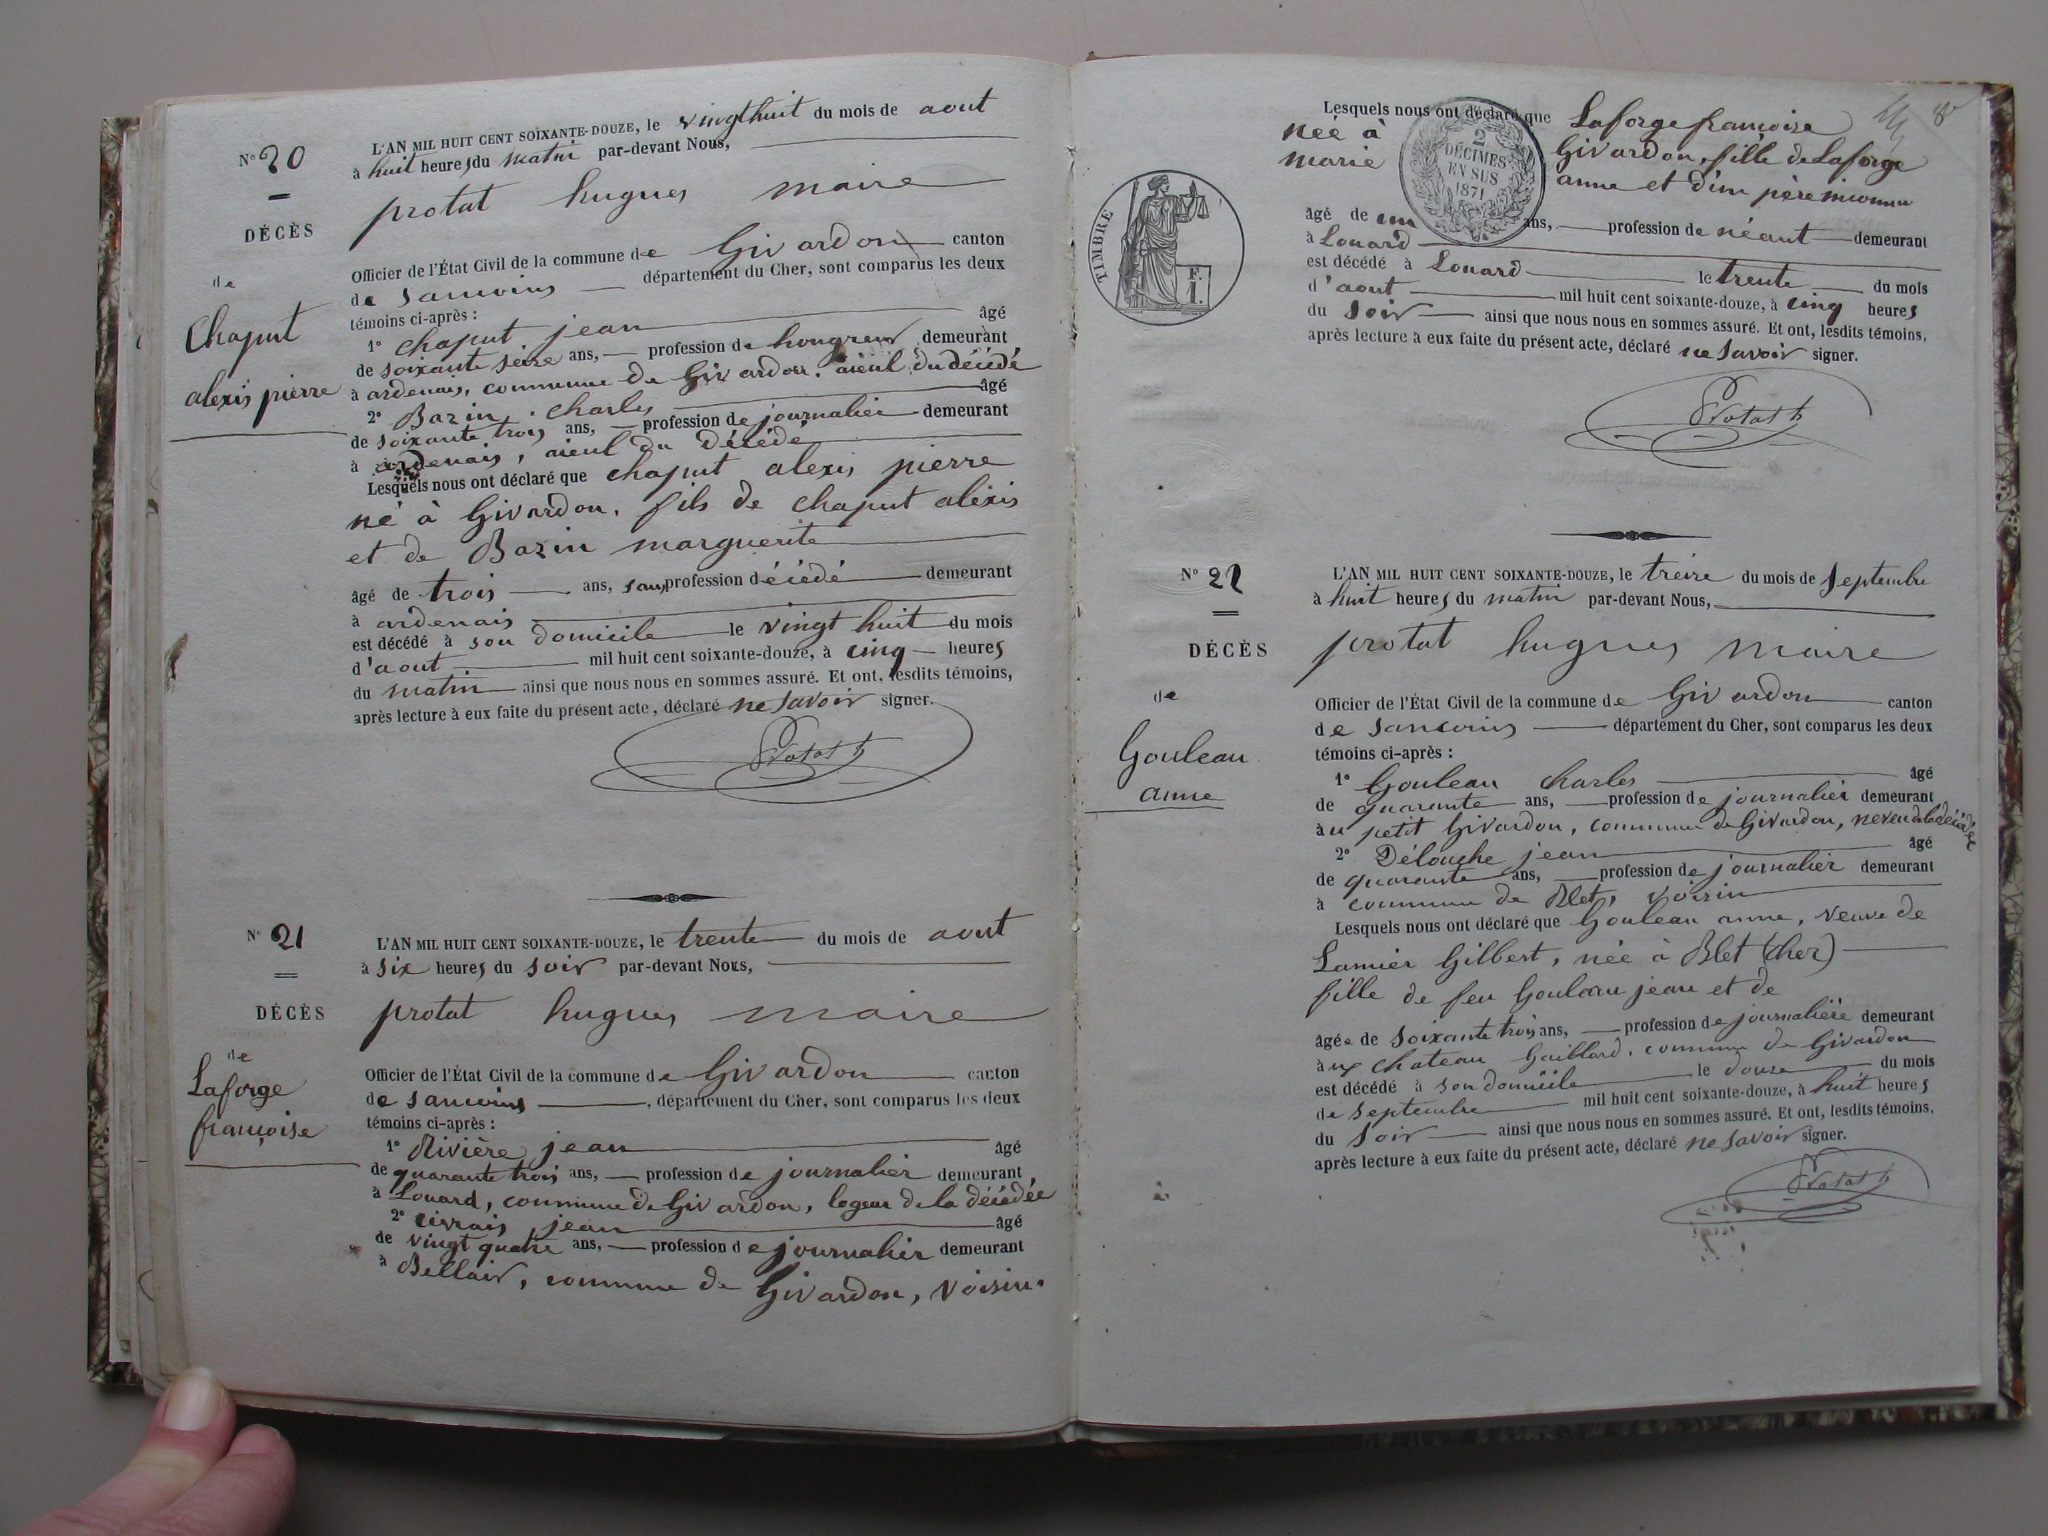 N° 20
DÉCÈS
de
Chaput
alexis pierre
L'AN MIL HUIT CENT SOIXANTE-DOUZE, le vingt huit du mois de aout
à huit heures du matin par-devant Nous,
protat hugues maire
Officier de l'État Civil de la commune de Givardon canton
de Sancoins département du Cher, sont comparus les deux
témoins ci-après :
1° Chaput jean âgé
de soixante seize ans, profession de hongreur demeurant
à ardenais, commune de Givardon. aieul du décédé
2° Bazin, Charles âgé
de soixante trois ans, profession de journalier demeurant
à ardenais, aieul du décédé
Lesquels nous ont déclaré que chaput alexis pierre
né à Givardon, fils de chaput alexis
et de Bazin marguerite
âgé de trois ans, sans profession décédé demeurant
à ardenais
est décédé à son domicile le vingt huit du mois
d'aout mil huit cent soixante-douze, à cinq heures
du matin ainsi que nous nous en sommes assuré. Et ont, lesdits témoins,
après lecture à eux faite du présent acte, déclaré ne savoir signer.
Protat h
N° 21
DÉCÈS
de
Laforge
françoise
L'AN MIL HUIT CENT SOIXANTE-DOUZE, le trente du mois de aout
à six heures du soir par-devant Nous,
protat hugues maire
Officier de l'État Civil de la commune de Givardon canton
de Sancoins, département du Cher, sont comparus les deux
témoins ci-après :
1° Rivière jean âgé
de quarante trois ans, profession de journalier demeurant
à Louard, commune de Givardon, logeur de la décédée
2° civrais jean âgé
de vingt quatre ans, profession de journalier demeurant
à Bellair, commune de Givardon, voisin.
8
Lesquels nous ont déclaré que Laforge françoise
née à Givardon, fille de Laforge
marie anne et d'un père inconnu
2
DÉCIMES
EN SUS
1871
TIMBRE
F.
I.
âgé de un ans, profession de néant demeurant
à Louard
est décédé à Louard le trente du mois
d'aout mil huit cent soixante-douze, à cinq heures
du soir ainsi que nous nous en sommes assuré. Et ont, lesdits témoins,
après lecture à eux faite du présent acte, déclaré ne savoir signer.
Protat h
N° 22
DÉCÈS
de
Gouleau
anne
L'AN MIL HUIT CENT SOIXANTE-DOUZE, le treize du mois de Septembre
à huit heures du matin par-devant Nous,
protat hugues maire
Officier de l'État Civil de la commune de Givardon canton
de Sancoins département du Cher, sont comparus les deux
témoins ci-après :
1° Gouleau Charles âgé
de quarante ans, profession de journalier demeurant
au petit Givardon, commune de Givardon, neveu de la décédée
2° Délouche jean âgé
de quarante ans, profession de journalier demeurant
à commune de Blet, voisin
Lesquels nous ont déclaré que Gouleau anne, veuve de
Lamier Gilbert, née à Blet (cher)
fille de feu Gouleau jean et de
âgée de soixante trois ans, profession de journalière demeurant
aux chateau Gaillard, commune de Givardon
est décédé à son domicile le douze du mois
de septembre mil huit cent soixante-douze, à huit heures
du soir ainsi que nous nous en sommes assuré. Et ont, lesdits témoins,
après lecture à eux faite du présent acte, déclaré ne savoir signer.
Protat h